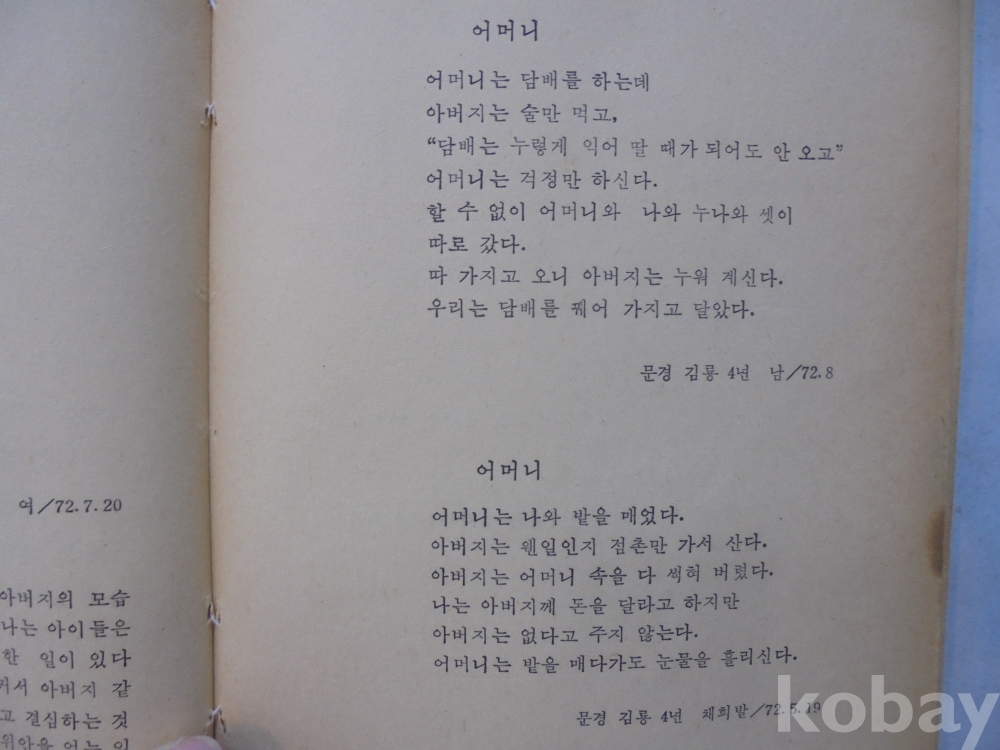 여/72.7.20
아버지의 모습
나는 아이들은
한 일이 있다
거서 아버지 같
고 결심하는 것
어머니
어머니는 담배를 하는데
아버지는 술만 먹고,
“담배는 누렇게 익어 딸 때가 되어도 안 오고”
어머니는 걱정만 하신다.
할 수 없이 어머니와 나와 누나와 셋이
따로 갔다.
따 가지고 오니 아버지는 누워 계신다.
우리는 담배를 꿰어 가지고 달았다.
문경 김룡 4년 남/72.8
어머니
어머니는 나와 밭을 매었다.
아버지는 웬일인지 점촌만 가서 산다.
아버지는 어머니 속을 다 썩혀 버렸다.
나는 아버지께 돈을 달라고 하지만
아버지는 없다고 주지 않는다.
어머니는 밭을 매다가도 눈물을 흘리신다.
문경 김룡 4년 채희발/72.5.19
kobay